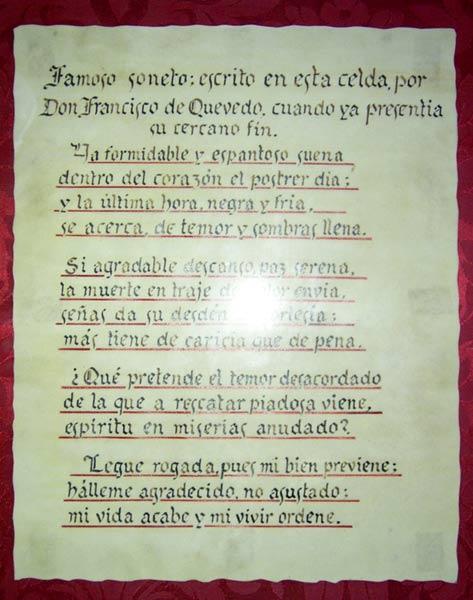 Famoso soneto: escrito en esta celda, por
Don Francisco de Quevedo, cuando ya presentia
su cercano fin.
Ya formidable y espantoso suena
dentro del corazón el postrer día;
y la última hora, negra y fría,
se acerca, de temor y sombras llena.
Si agradable descanso, paz serena,
la muerte en traje de dolor envía,
señas da su desdén cortesía:
más tiene de caricia que de pena.
¿Qué pretende el temor desacordado
de la que a rescatar piadosa viene,
espíritu en miserias anudado?
Legue rogada, pues mi bien previene;
hálleme agradecido, no asustado;
mi vida acabe y mi vivir ordene.